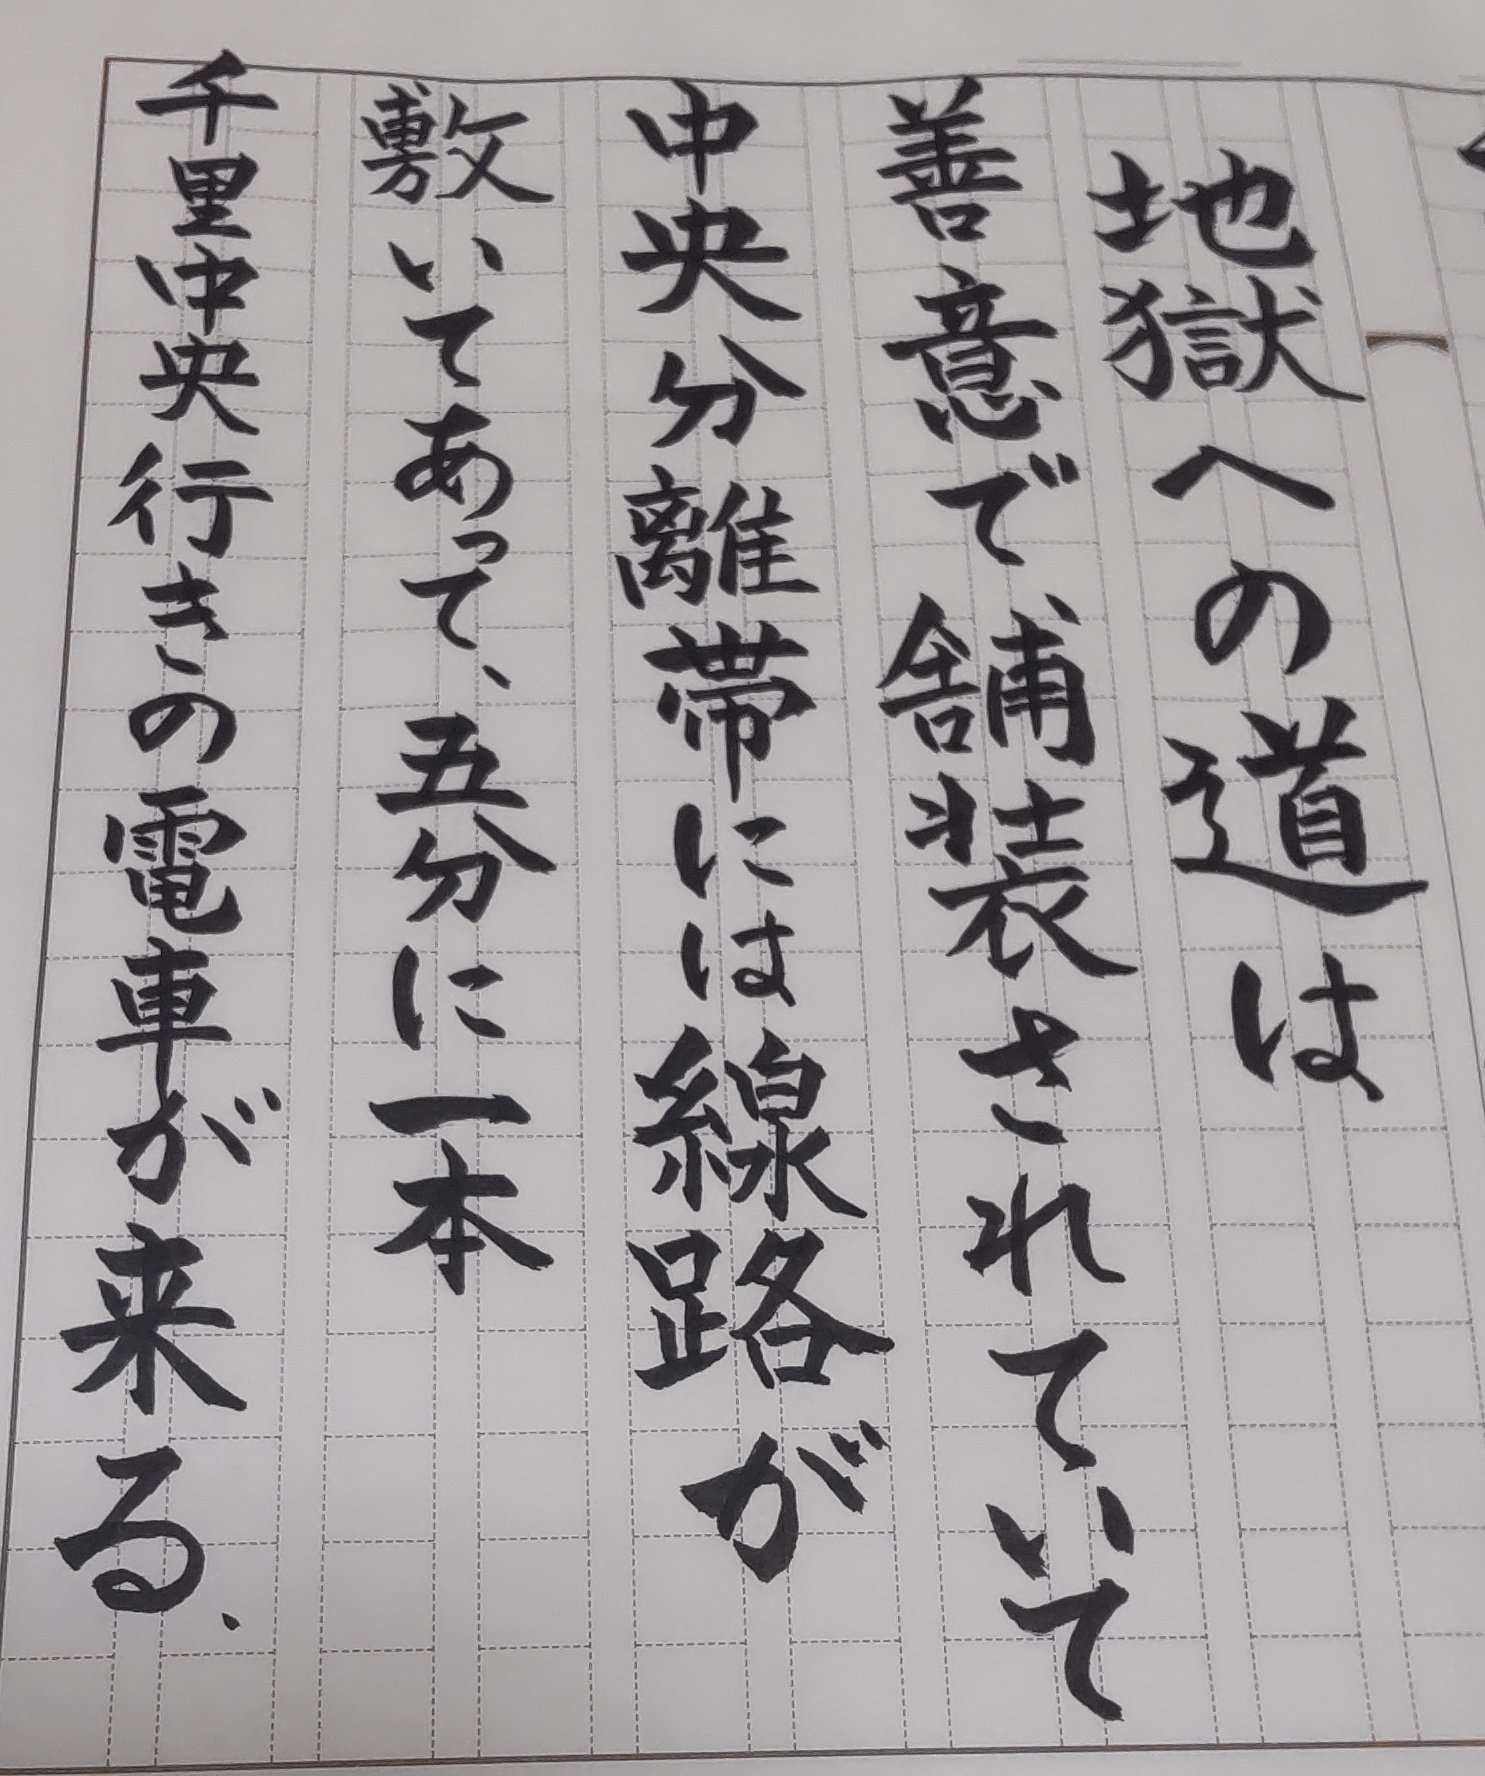 地獄への道は
善意で舗装されていて
中央分離帯には線路が
敷いてあって、五分に一本
千里中央行きの電車が来る、